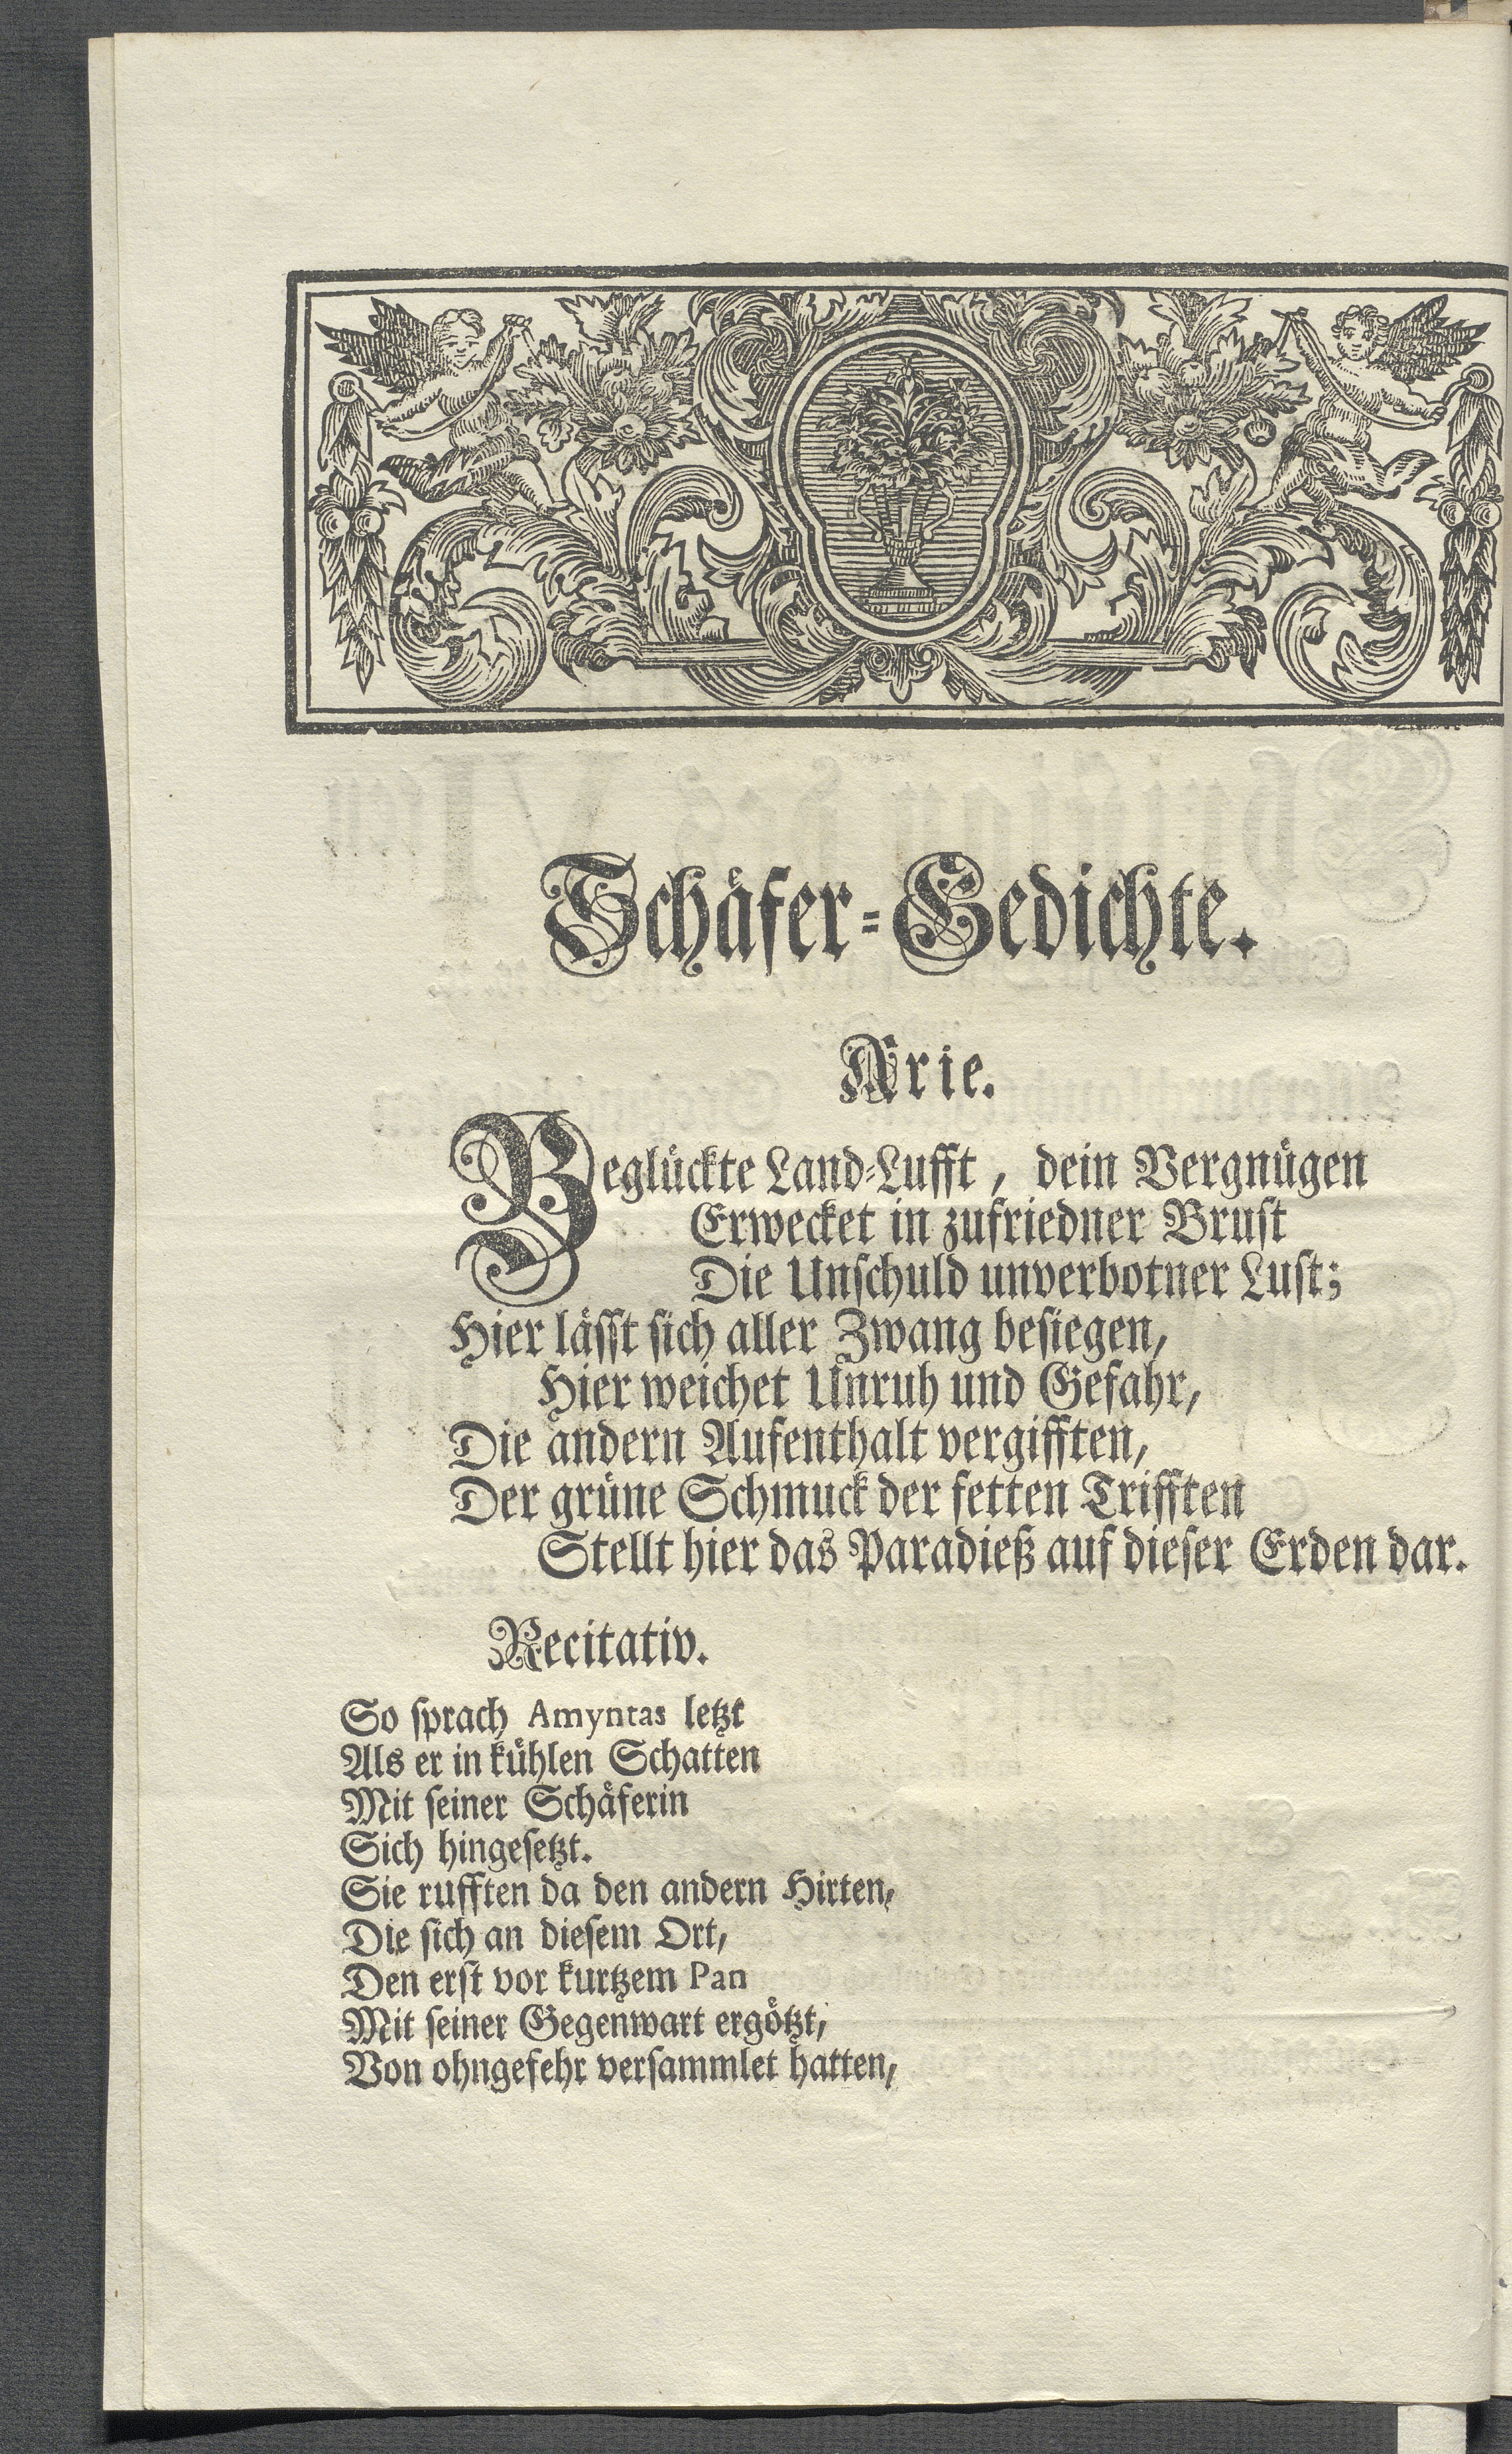 Schäfer-Gedichte.
Arie.
Beglückte Land-Lufft, dein Vergnügen
Erwecket in zufriedner Brust
Die Unschuld unverbotner Lust;
Hier lässt sich aller Zwang besiegen,
Hier weichet Unruh und Gefahr,
Die andern Aufenthalt vergifften,
Der grüne Schmuck der fetten Trifften
Stellt hier das Paradieß auf dieser Erden dar.
Recitativ.
So sprach Amyntas letzt
Als er in kühlen Schatten
Mit seiner Schäferin
Sich hingesetzt.
Sie rufften da den andern Hirten,
Die sich an diesem Ort,
Den erst vor kurtzem Pan
Mit seiner Gegenwart ergötzt,
Von ohngefehr versammlet hatten,